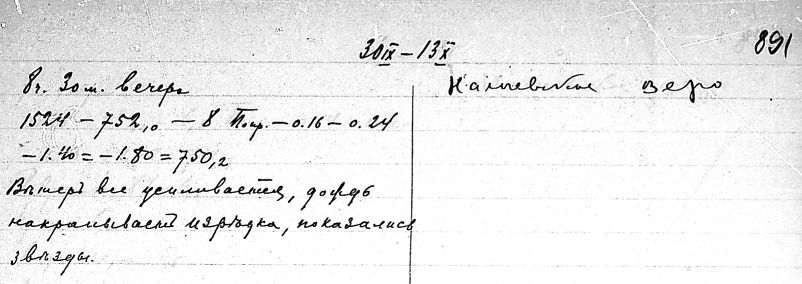 30 IX – 13 X
891
8ч. 30м. вечера
1524 – 752,0 – 8 Попр. – 0.16 – 0.24
– 1.40 = – 1.80 = 750,2
Вѣтеръ все усиливается, дождь
накрапываетъ изрѣдка, показались
звѣзды.
озеро